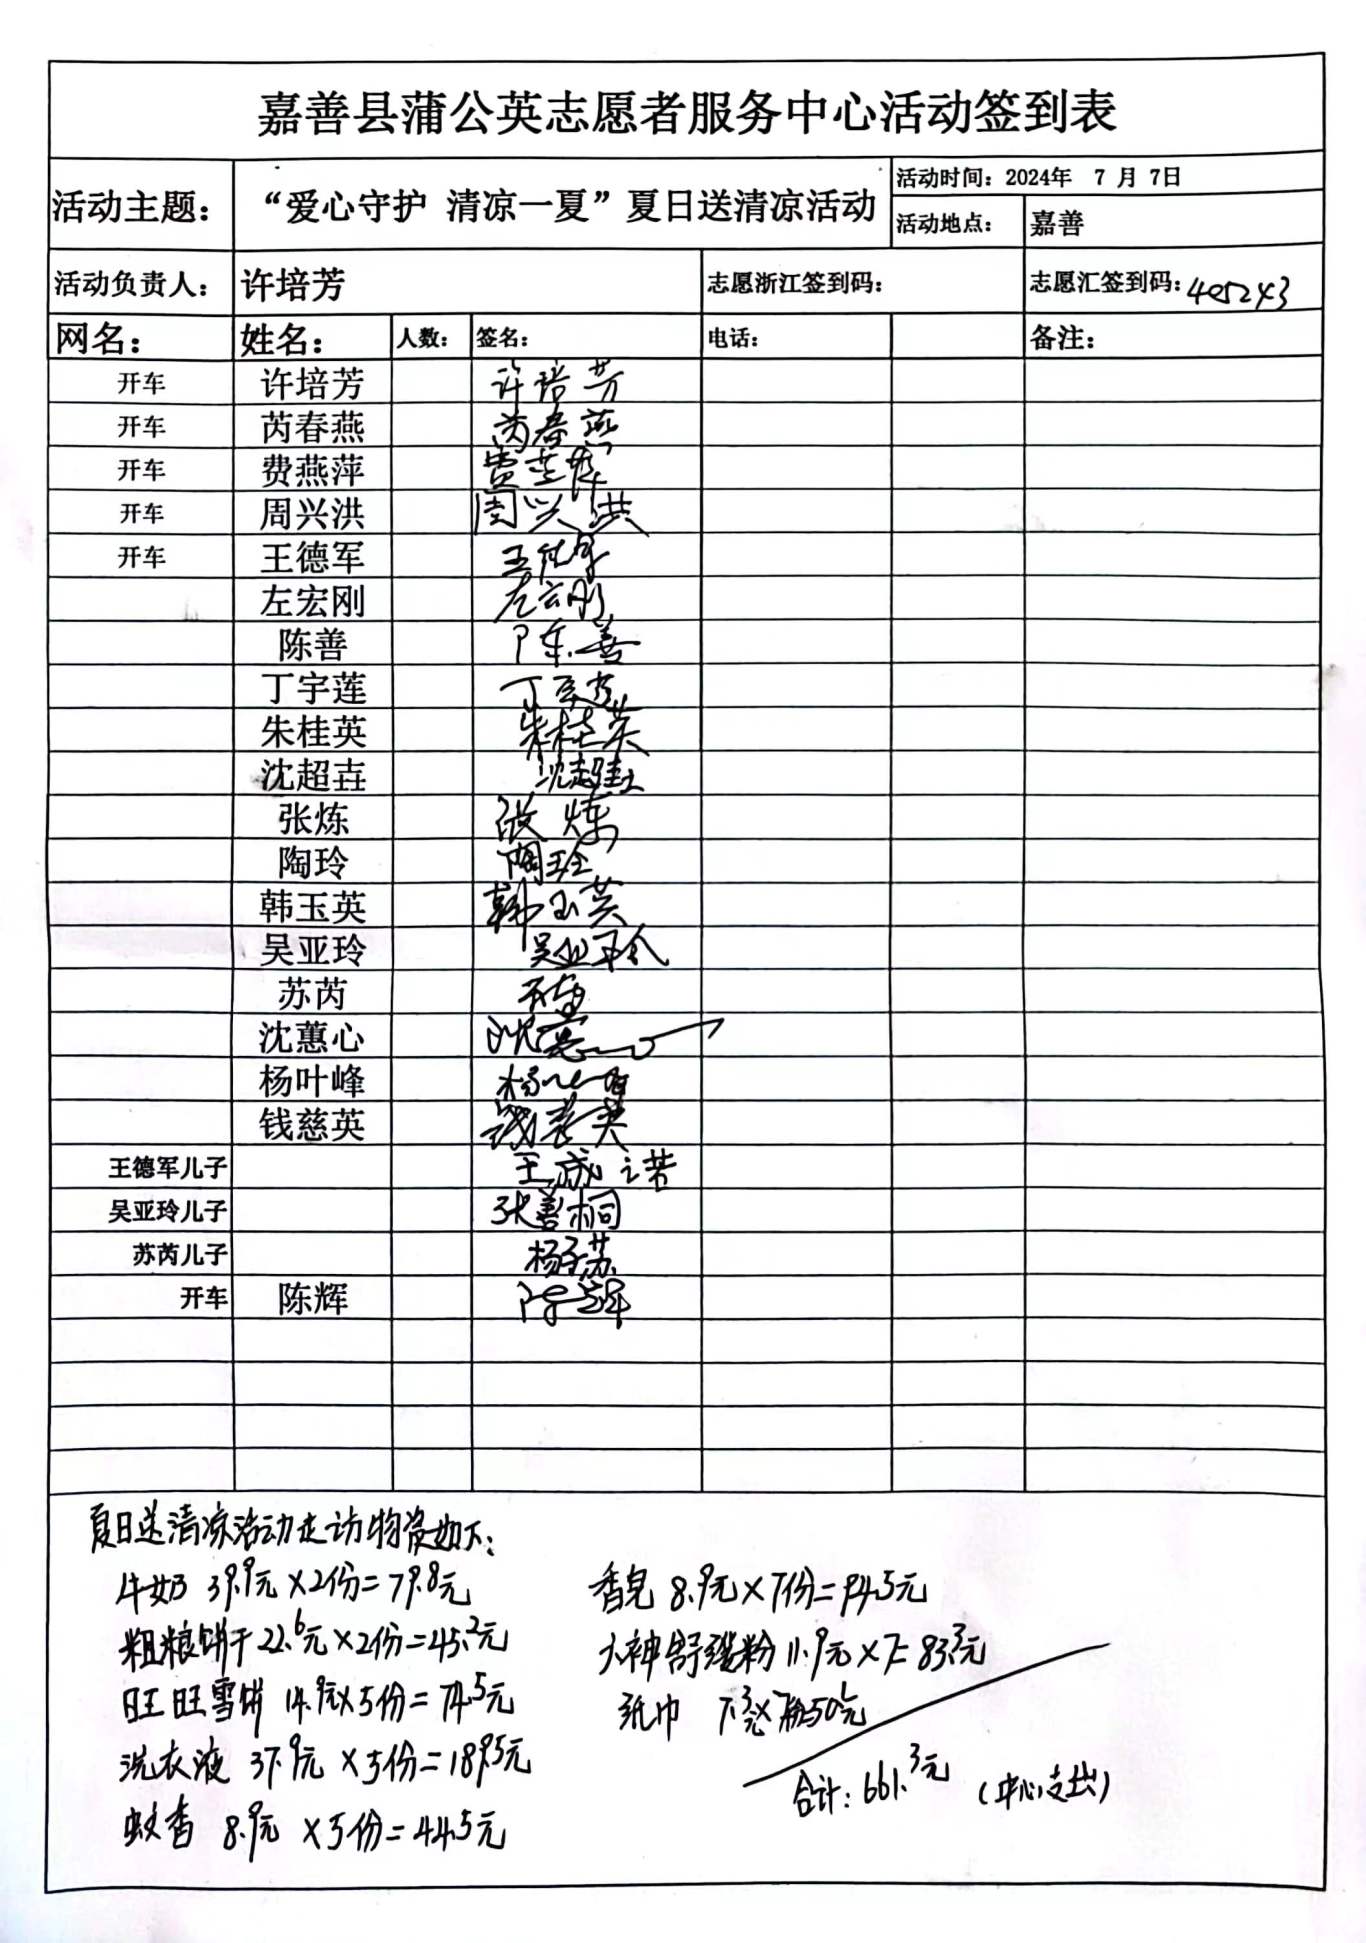 嘉善县蒲公英志愿者服务中心活动签到表
活动主题： “爱心守护 清凉一夏”夏日送清凉活动 活动时间：2024年 7 月 7日
活动地点： 嘉善
活动负责人： 许培芳 志愿浙江签到码： 志愿汇签到码：405243
网名： 姓名： 人数： 签名： 电话： 备注：
开车 许培芳 许培芳
开车 芮春燕 芮春燕
开车 费燕萍 费燕萍
开车 周兴洪 周兴洪
开车 王德军 王德军
左宏刚 左宏刚
陈善 陈善
丁宇莲 丁宇莲
朱桂英 朱桂英
沈超壵 沈超壵
张炼 张炼
陶玲 陶玲
韩玉英 韩玉英
吴亚玲 吴亚玲
苏芮 苏芮
沈蕙心 沈蕙心
杨叶峰 杨叶峰
钱慈英 钱慈英
王德军儿子 王成诺
吴亚玲儿子 张善桐
苏芮儿子 杨子苏
开车 陈辉 陈辉
夏日送清凉活动走访物资如下：
牛奶 39.9元×2份=79.8元 香皂 8.9元×7份=94.5元
粗粮饼干 22.6元×2份=45.2元 火神舒缓粉 11.9元×7=83.3元
旺旺雪饼 14.9元×5份=74.5元 纸巾 7.3元×7份=50.1元
洗衣液 37.9元×5份=189.5元
合计：661.3元 （中心支出）
蚊香 8.9元×5份=44.5元